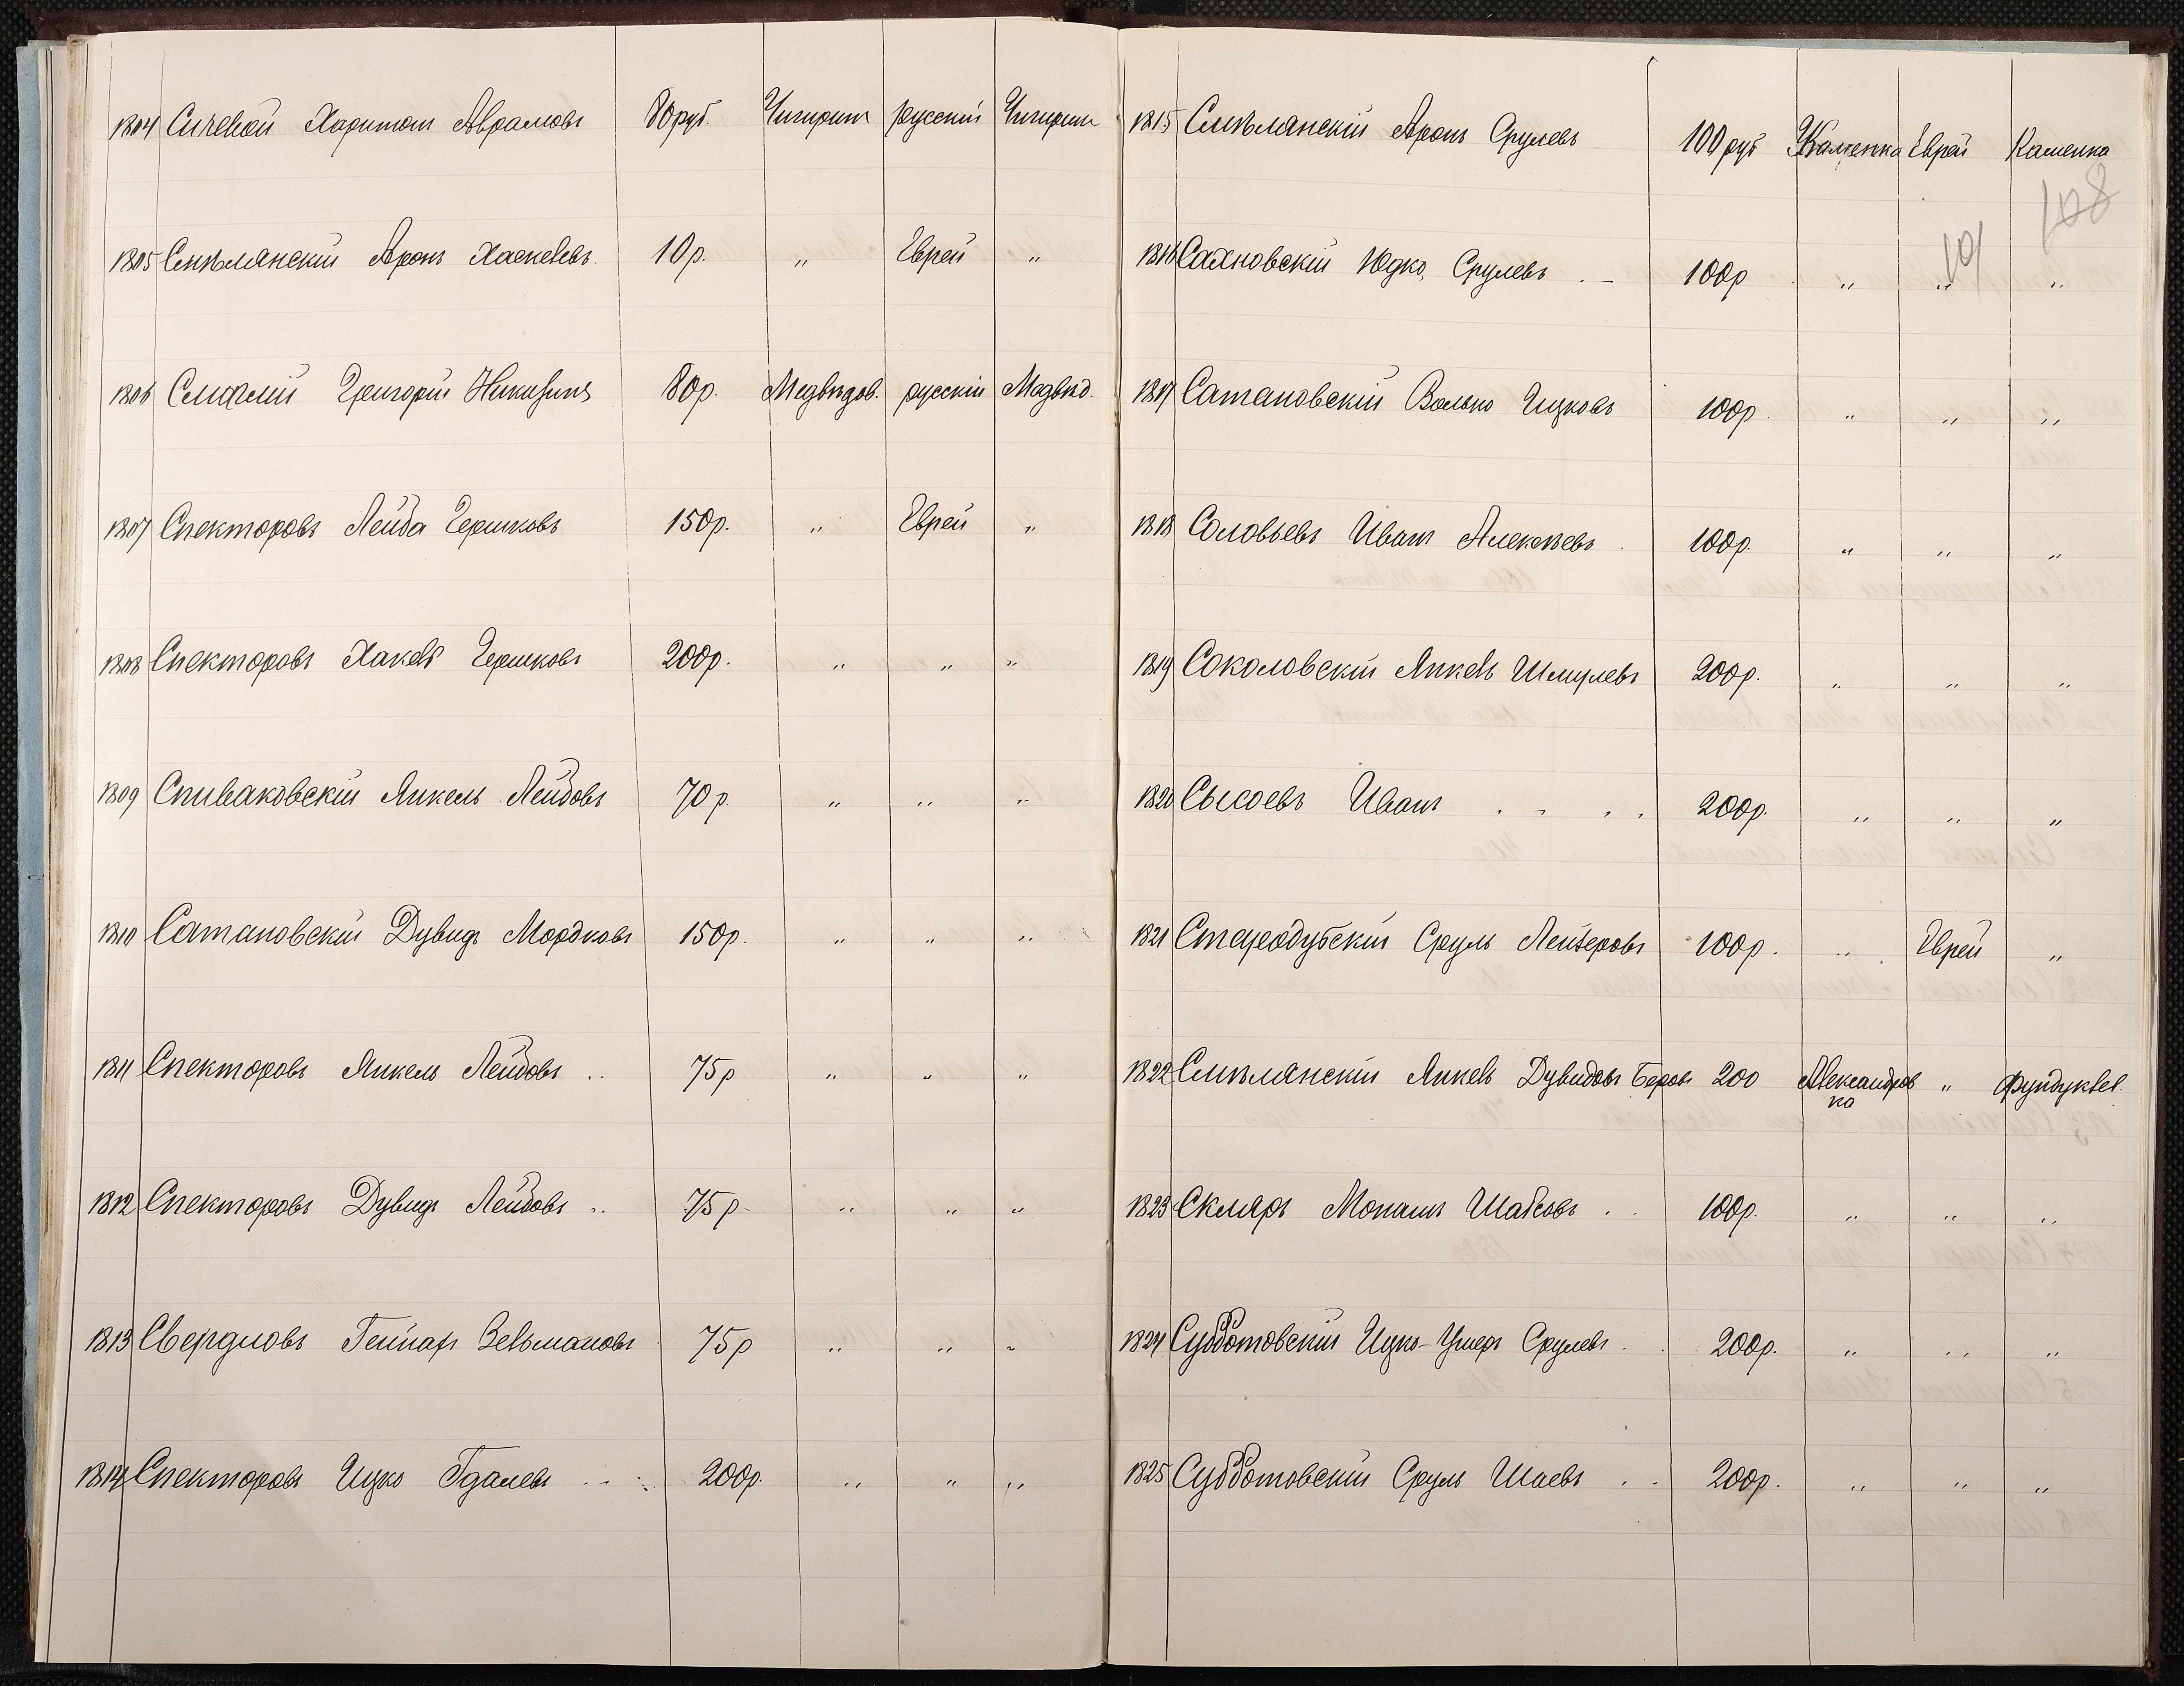 1804 Сичевой Харитонъ Авраамовъ 80 руб. Чигиринъ русский Чигиринъ
1805 Смѣлянский Аронъ Хаскелевъ 10 р. " Еврей "
1806 Григорий 80 р. Медвѣдов. русский Медвѣд.
1807 Спекторовъ Лейба Гершковъ 150 р. " Еврей "
1808 Спекторовъ Гершковъ 200 р. " " "
1809 Спиваковский Янкель Лейбовъ 70 р. " " "
1810 Сатановский Дувидъ Мордковъ 150 р. " " "
1811 Спекторовъ Янкель Лейбовъ .. 75 р " " "
1812 Спекторовъ Дувидъ Лейбовъ .. 75 р. " " "
1813 Свердловъ Зельмановъ 75 р " " "
1814 Спекторовъ Ицко Гдалевъ 200 р. " " "
1815 Смѣлянский Аронъ Срулевъ 100 руб Каменка Еврей Каменка
108
101
1816 Сахновский Юдко Срулевъ 100 р " " "
1817 Сатановский Волько Ицковъ 100 р. " " "
1818 Соловьевъ Иванъ Алексѣевъ 100 р. " " "
1819 Соколовский Янкель Шмулевъ 200 р. " " "
1820 Сысоевъ Иванъ 200 р. " " "
1821 Стародубский Сруль Лейзеровъ 100 р. " Еврей "
1822 Смѣлянский Янкель Дувидовъ Беровъ 200 Александров " Фундуклеев.
ка
1823 Скляръ Монашъ Шабсовъ 100 р. " " "
1824 Субботовский Ицко-Ушеръ Срулевъ 200 р. " " "
1825 Субботовский Сруль Шаевъ 200 р. " " "